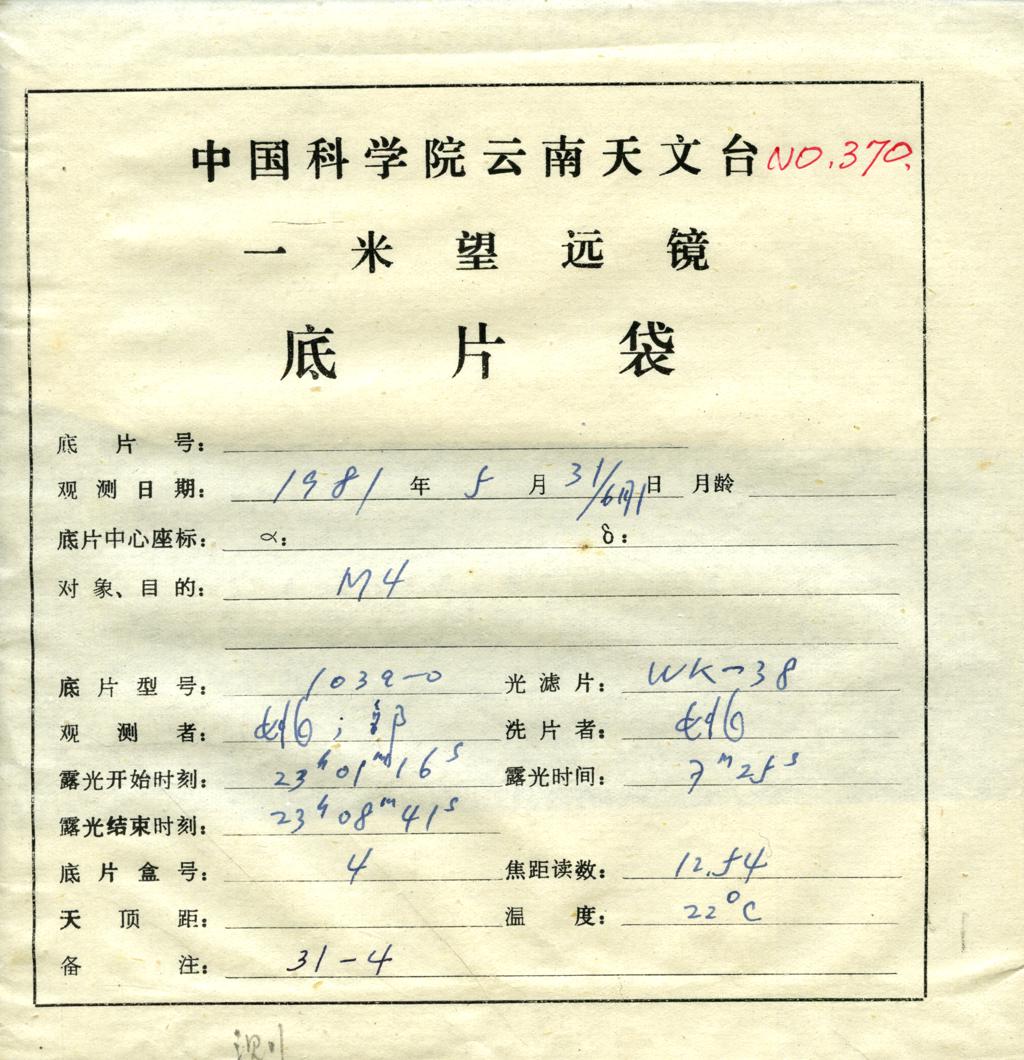 中国科学院云南天文台 NO.370.
一米望远镜
底片袋
底片号:
观测日期: 1981年5月31/6月1日 月龄
底片中心座标: α: δ:
对象、目的: M4
底片型号: 103a-O 光滤片: WK-38
观测者: 洗片者:
露光开始时刻: 23h01m16s 露光时间: 7m25s
露光结束时刻: 23h08m41s
底片盒号: 4 焦距读数: 12.54
天顶距: 温度: 22°C
备注: 31-4